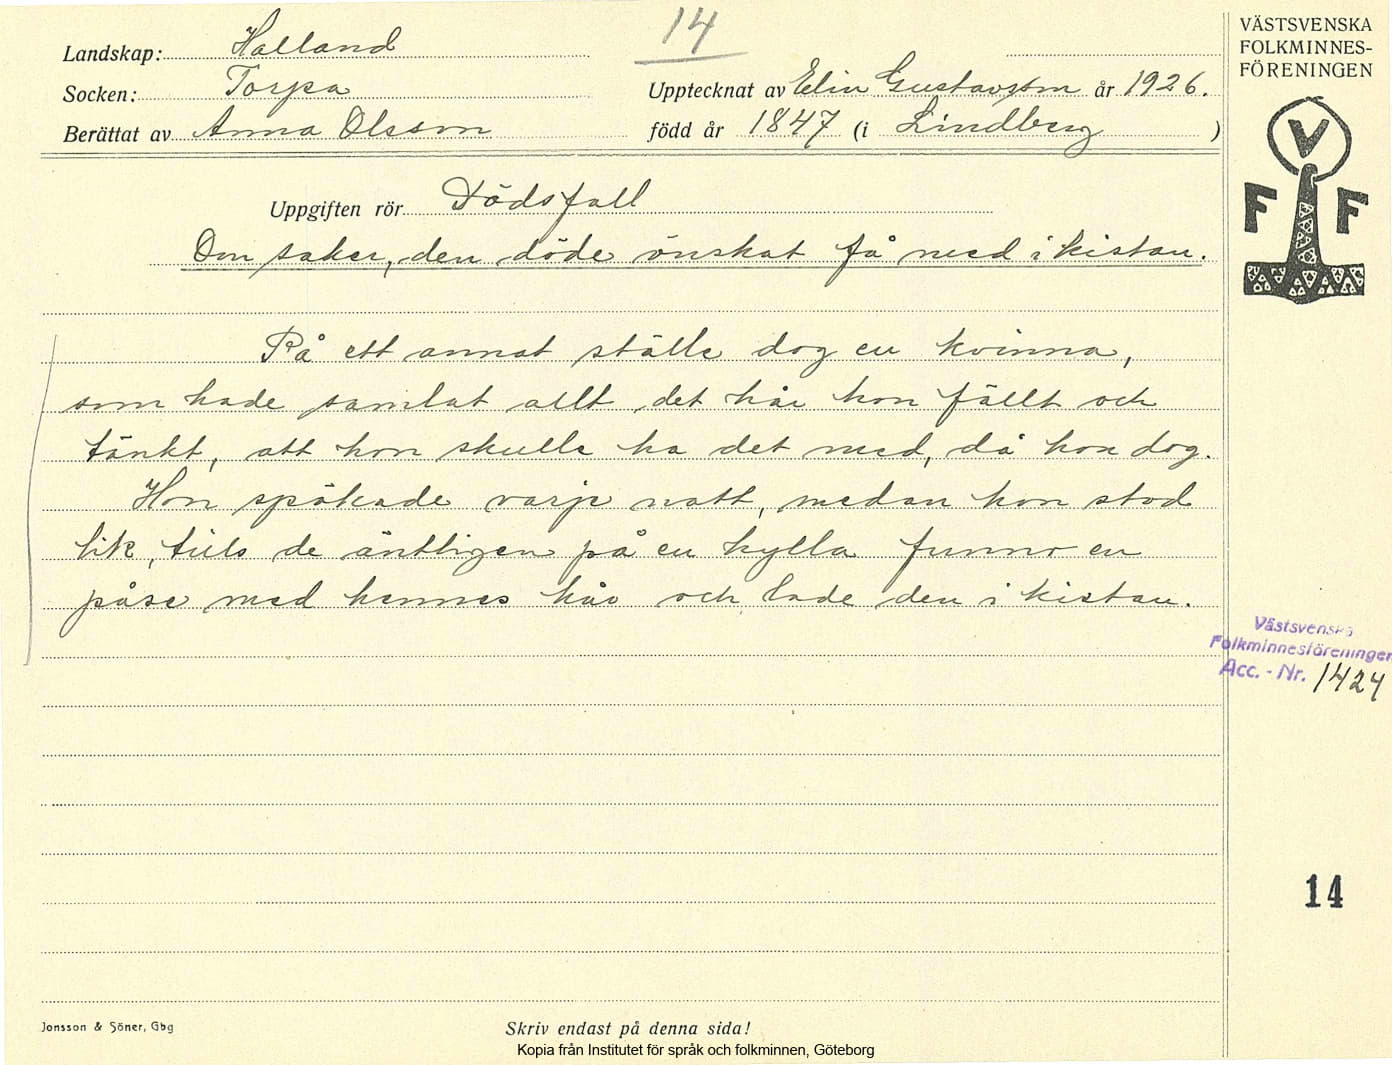 Landskap: Halland
14
VÄSTSVENSKA
FOLKMINNES-
FÖRENINGEN
Socken: Torpa
Upptecknat av Elin Gustavsson år 1926.
Berättat av Anna Olsson
född år 1847 (i Lindberg )
V
F F
Uppgiften rör Dödsfall
Om saker, den döde önskat få med i kistan.
På ett annat ställe dog en kvinna,
som hade samlat allt det hår hon fällt och
tänkt, att hon skulle ha det med, då hon dog.
Hon spökade varje natt, medan hon stod
lik, tills de äntligen på en hylla funno en
påse med hennes hår och lade den i kistan.
Västsvenska
Folkminnesföreningen
Acc. - Nr. 1424
14
Jonsson & Söner, Gbg
Skriv endast på denna sida!
Kopia från Institutet för språk och folkminnen, Göteborg